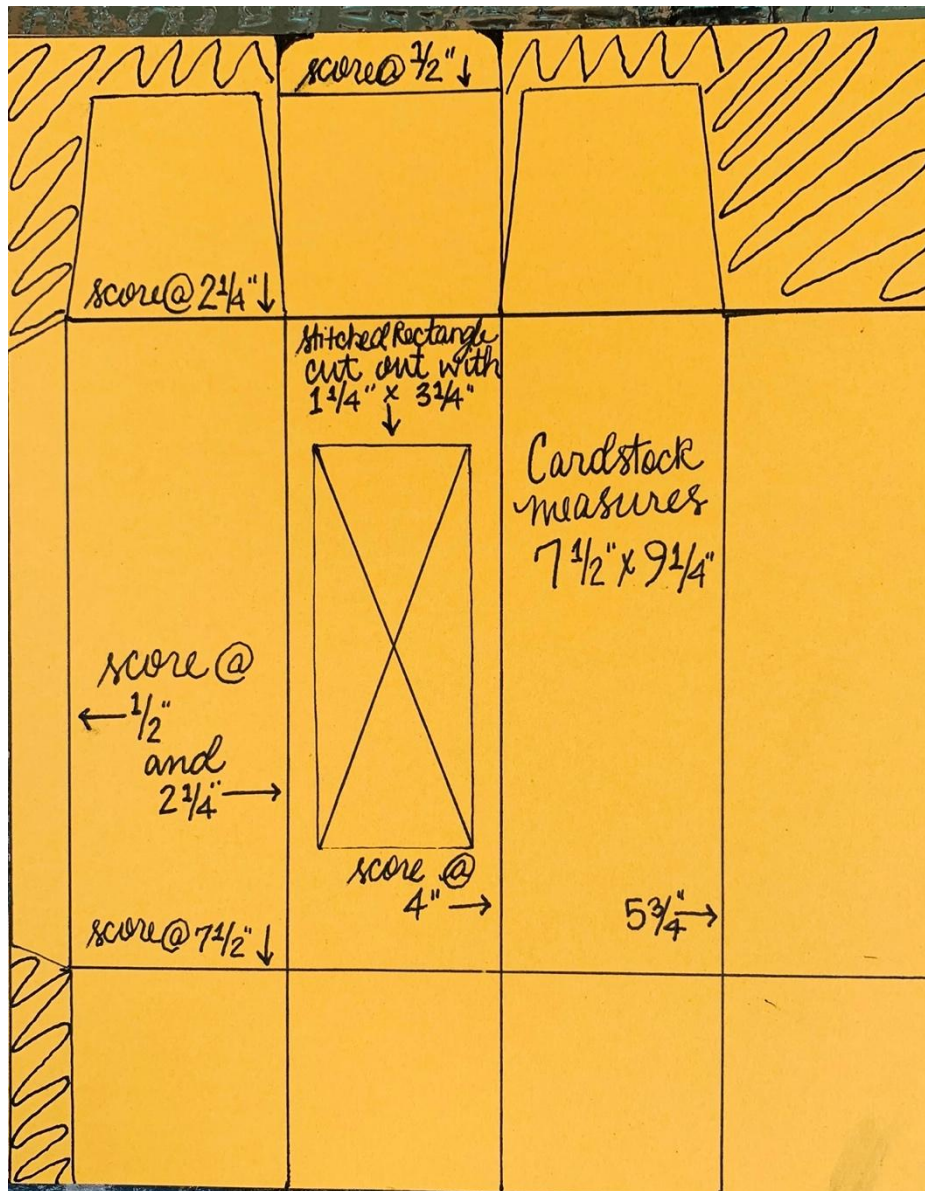 score@ 1/2" ↓
score@ 2 1/4" ↓
Stitched Rectangle
cut out with
1 1/4" x 3 1/4"
↓
Cardstock
measures
7 1/2" x 9 1/4"
score @
← 1/2"
and
2 1/4" →
score @
4" →
5 3/4" →
score@ 7 1/2" ↓